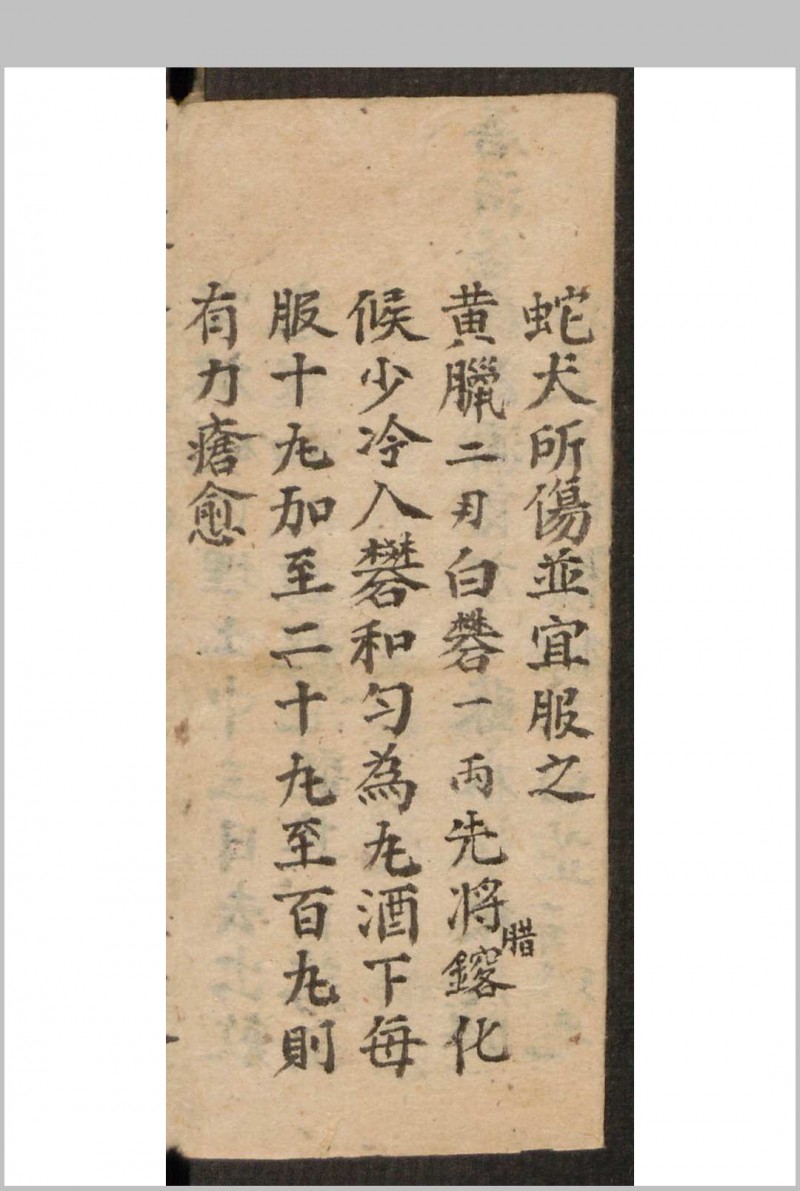 蛇犬所傷並宜服之
黄臘二刄白礬一兩先將腊鎔化
候少冷入礬和匀為丸酒下每
服十丸加至二十丸至百丸則
有力瘡愈